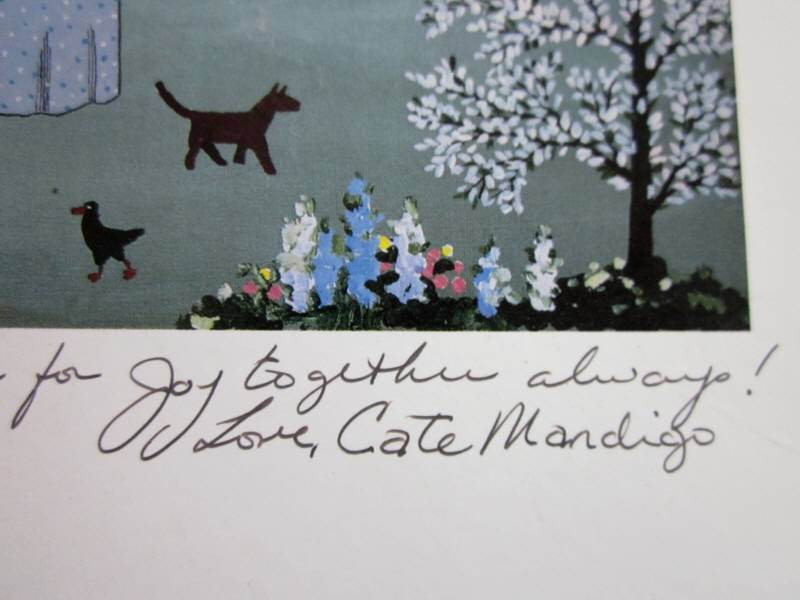 for Joy together always!
Love, Cate Mandigo